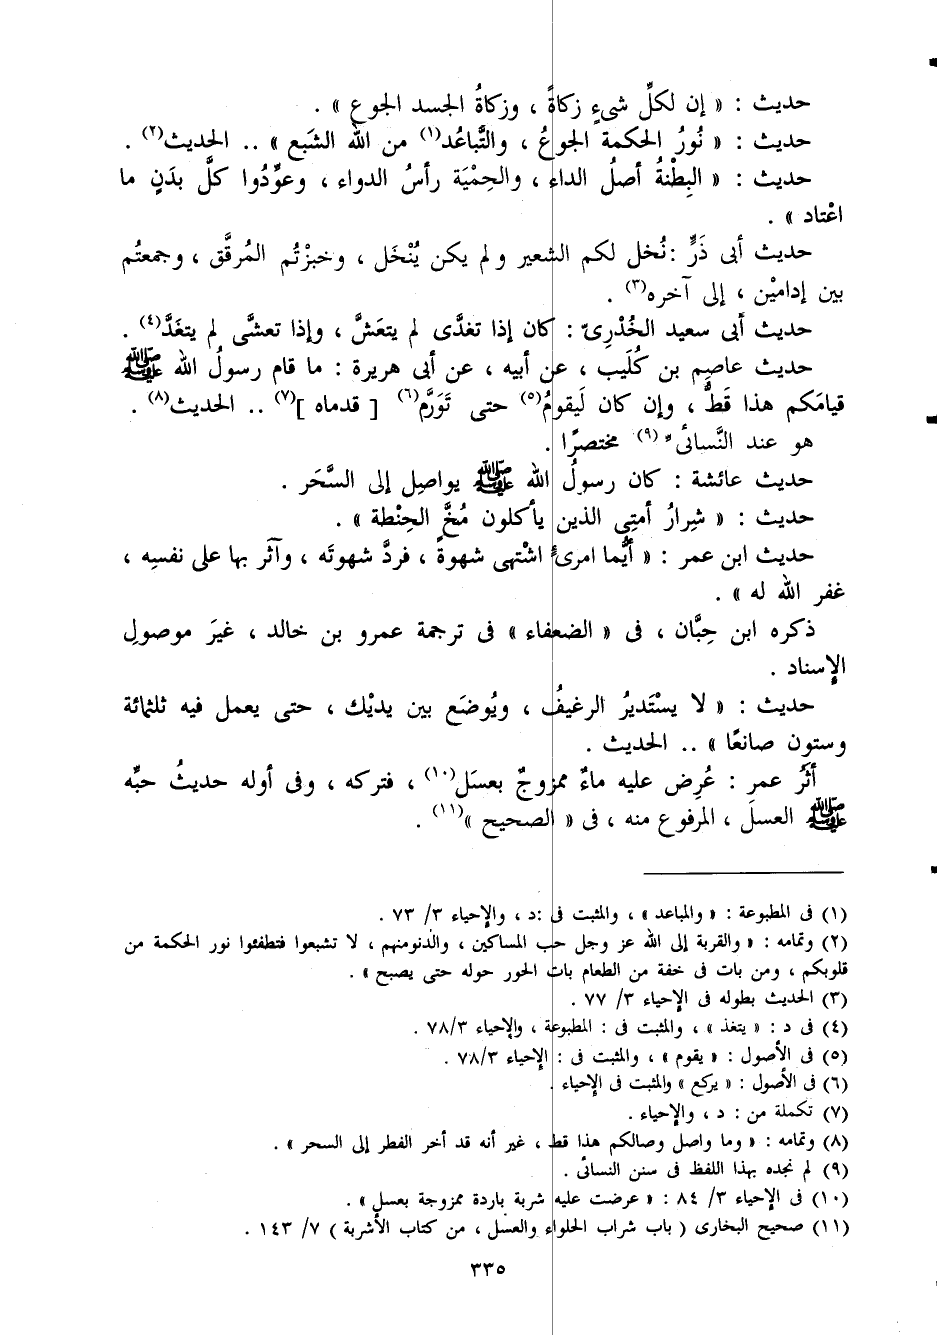 حديث : « إن لكلِّ شىءٍ زكاةً ، وزكاةُ الجسد الجوع » .
حديث : « نُورُ الحكمة الجوعُ ، والتَّباعُد(١) من الله الشبَع » .. الحديث(٢) .
حديث : « البِطْنةُ أصلُ الداء ، والحِمْيَة رأسُ الدواء ، وعوِّدُوا كلَّ بدَنٍ ما
اعْتاد » .
حديث أبى ذَرٍّ : نُخل لكم الشعير ولم يكن يُنْخَل ، وخبزْتُم المُرقَّق ، وجمعتُم
بين إدامَيْن ، إلى آخره(٣) .
حديث أبى سعيد الخُدْرِىّ : كان إذا تغدَّى لم يتعَشَّ ، وإذا تعشَّى لم يتغَدَّ(٤) .
حديث عاصِم بن كُلَيب ، عن أبيه ، عن أبى هريرة : ما قام رسولُ الله ﷺ
قيامَكم هذا قَطُّ ، وإن كان لَيقومُ(٥) حتى تَوَرَّم(٦) [ قدماه ](٧) .. الحديث(٨) .
هو عند النَّسائىّ(٩) مختصرًا .
حديث عائشة : كان رسولُ الله ﷺ يواصِل إلى السَّحَر .
حديث : « شِرارُ أمتِى الذين يأكلون مُخَّ الحِنْطة » .
حديث ابن عمر : « أيُّما امرىءٍ اشْتهى شهوةً ، فردَّ شهوتَه ، وآثَر بها على نفسِه ،
غفر الله له » .
ذكره ابن حِبَّان ، فى « الضعفاء » فى ترجمة عمرو بن خالد ، غيرَ موصولِ
الإسناد .
حديث : « لا يسْتَديرُ الرغيفُ ، ويُوضَع بين يديْك ، حتى يعمل فيه ثلثمائة
وستون صانعًا » .. الحديث .
أثَرُ عمر : عُرِض عليه ماءٌ ممزوجٌ بعسَل(١٠) ، فتركه ، وفى أوله حديثُ حبِّه
ﷺ العسلَ ، المرفوع منه ، فى « الصحيح »(١١) .
(١) فى المطبوعة : « والمباعد » ، والمثبت فى :د ، والإحياء ٣/ ٧٣ .
(٢) وتمامه : « والقربة إلى الله عز وجل حب المساكين ، والدنومنهم ، لا تشبعوا فتطفئوا نور الحكمة من
قلوبكم ، ومن بات فى خفة من الطعام بات الحور حوله حتى يصبح » .
(٣) الحديث بطوله فى الإحياء ٣/ ٧٧ .
(٤) فى د : « يتغذ » ، والمثبت فى : المطبوعة ، والإحياء ٧٨/٣ .
(٥) فى الأصول : « يقوم » ، والمثبت فى : الإحياء ٧٨/٣ .
(٦) فى الأصول : « يركع » والمثبت فى الإحياء .
(٧) تكملة من : د ، والإحياء .
(٨) وتمامه : « وما واصل وصالكم هذا قط ، غير أنه قد أخر الفطر إلى السحر » .
(٩) لم نجده بهذا اللفظ فى سنن النسائى .
(١٠) فى الإحياء ٣/ ٨٤ : « عرضت عليه شربة باردة ممزوجة بعسل » .
(١١) صحيح البخارى ( باب شراب الحلواء والعسل ، من كتاب الأشربة ) ٧/ ١٤٣ .
٣٣٥